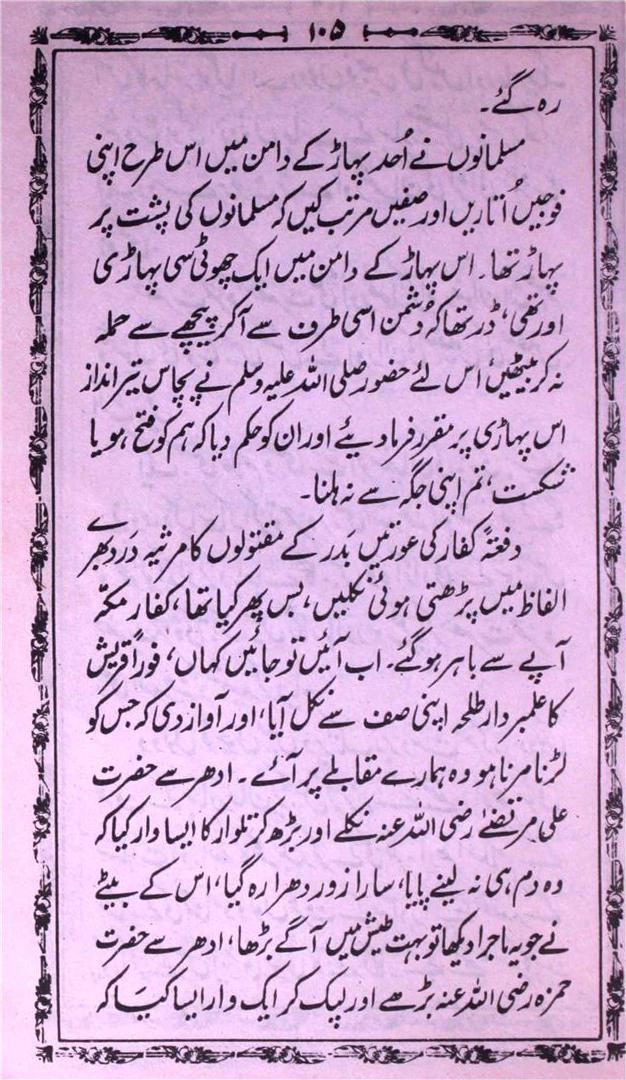 ۱۰۵
رہ گئے۔
مسلمانوں نے اُحد پہاڑ کے دامن میں اس طرح اپنی
فوجیں اُتاریں اور صفیں مرتب کیں کہ مسلمانوں کی پشت پر
پہاڑ تھا۔ اس پہاڑ کے دامن میں ایک چھوٹی سی پہاڑی
اور تھی، ڈر تھا کہ دُشمن اسی طرف سے آکر پیچھے سے حملہ
نہ کر بیٹھیں اس لئے حضور صلی اللہ علیہ وسلم نے پچاس تیر انداز
اس پہاڑی پر مقرر فرما دیئے اور ان کو حکم دیا کہ ہم کو فتح ہو یا
شکست، تم اپنی جگہ سے نہ ہلنا۔
دفعتہً کفار کی عورتیں بدر کے مقتولوں کا مرثیہ درد بھرے
الفاظ میں پڑھتی ہوئی نکلیں، بس پھر کیا تھا، کفار مکہ
آپے سے باہر ہو گئے۔ اب آئیں تو جائیں کہاں، فوراً قریش
کا علمبردار طلحہ اپنی صف سے نکل آیا، اور آواز دی کہ جس کو
لڑنا مرنا ہو وہ ہمارے مقابلے پر آئے۔ ادھر سے حضرت
علی مرتضےٰ رضی اللہ عنہ نکلے اور بڑھ کر تلوار کا ایسا وار کیا کہ
وہ دم ہی نہ لینے پایا، سارا زور دھرا رہ گیا، اس کے بیٹے
نے جو یہ ماجرا دیکھا تو بہت طیش میں آگے بڑھا، ادھر سے حضرت
حمزہ رضی اللہ عنہ بڑھے اور لپک کر ایک وار ایسا کیا کہ